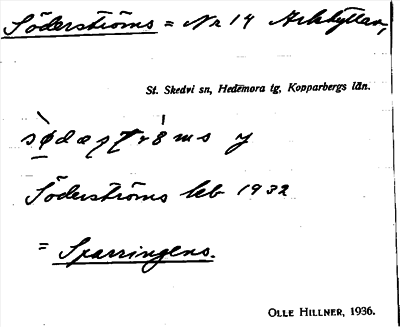 Söderströms = Nr 14 Arkhyttan,
St. Skedvi sn, Hedemora tg, Kopparbergs län.
y
Söderströms leb 1932
= Sparringens.
OLLE HILLNER, 1936.